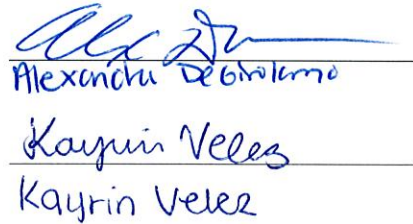 Alexandra DeGirolamo
Kayrin Velez
Kayrin Velez